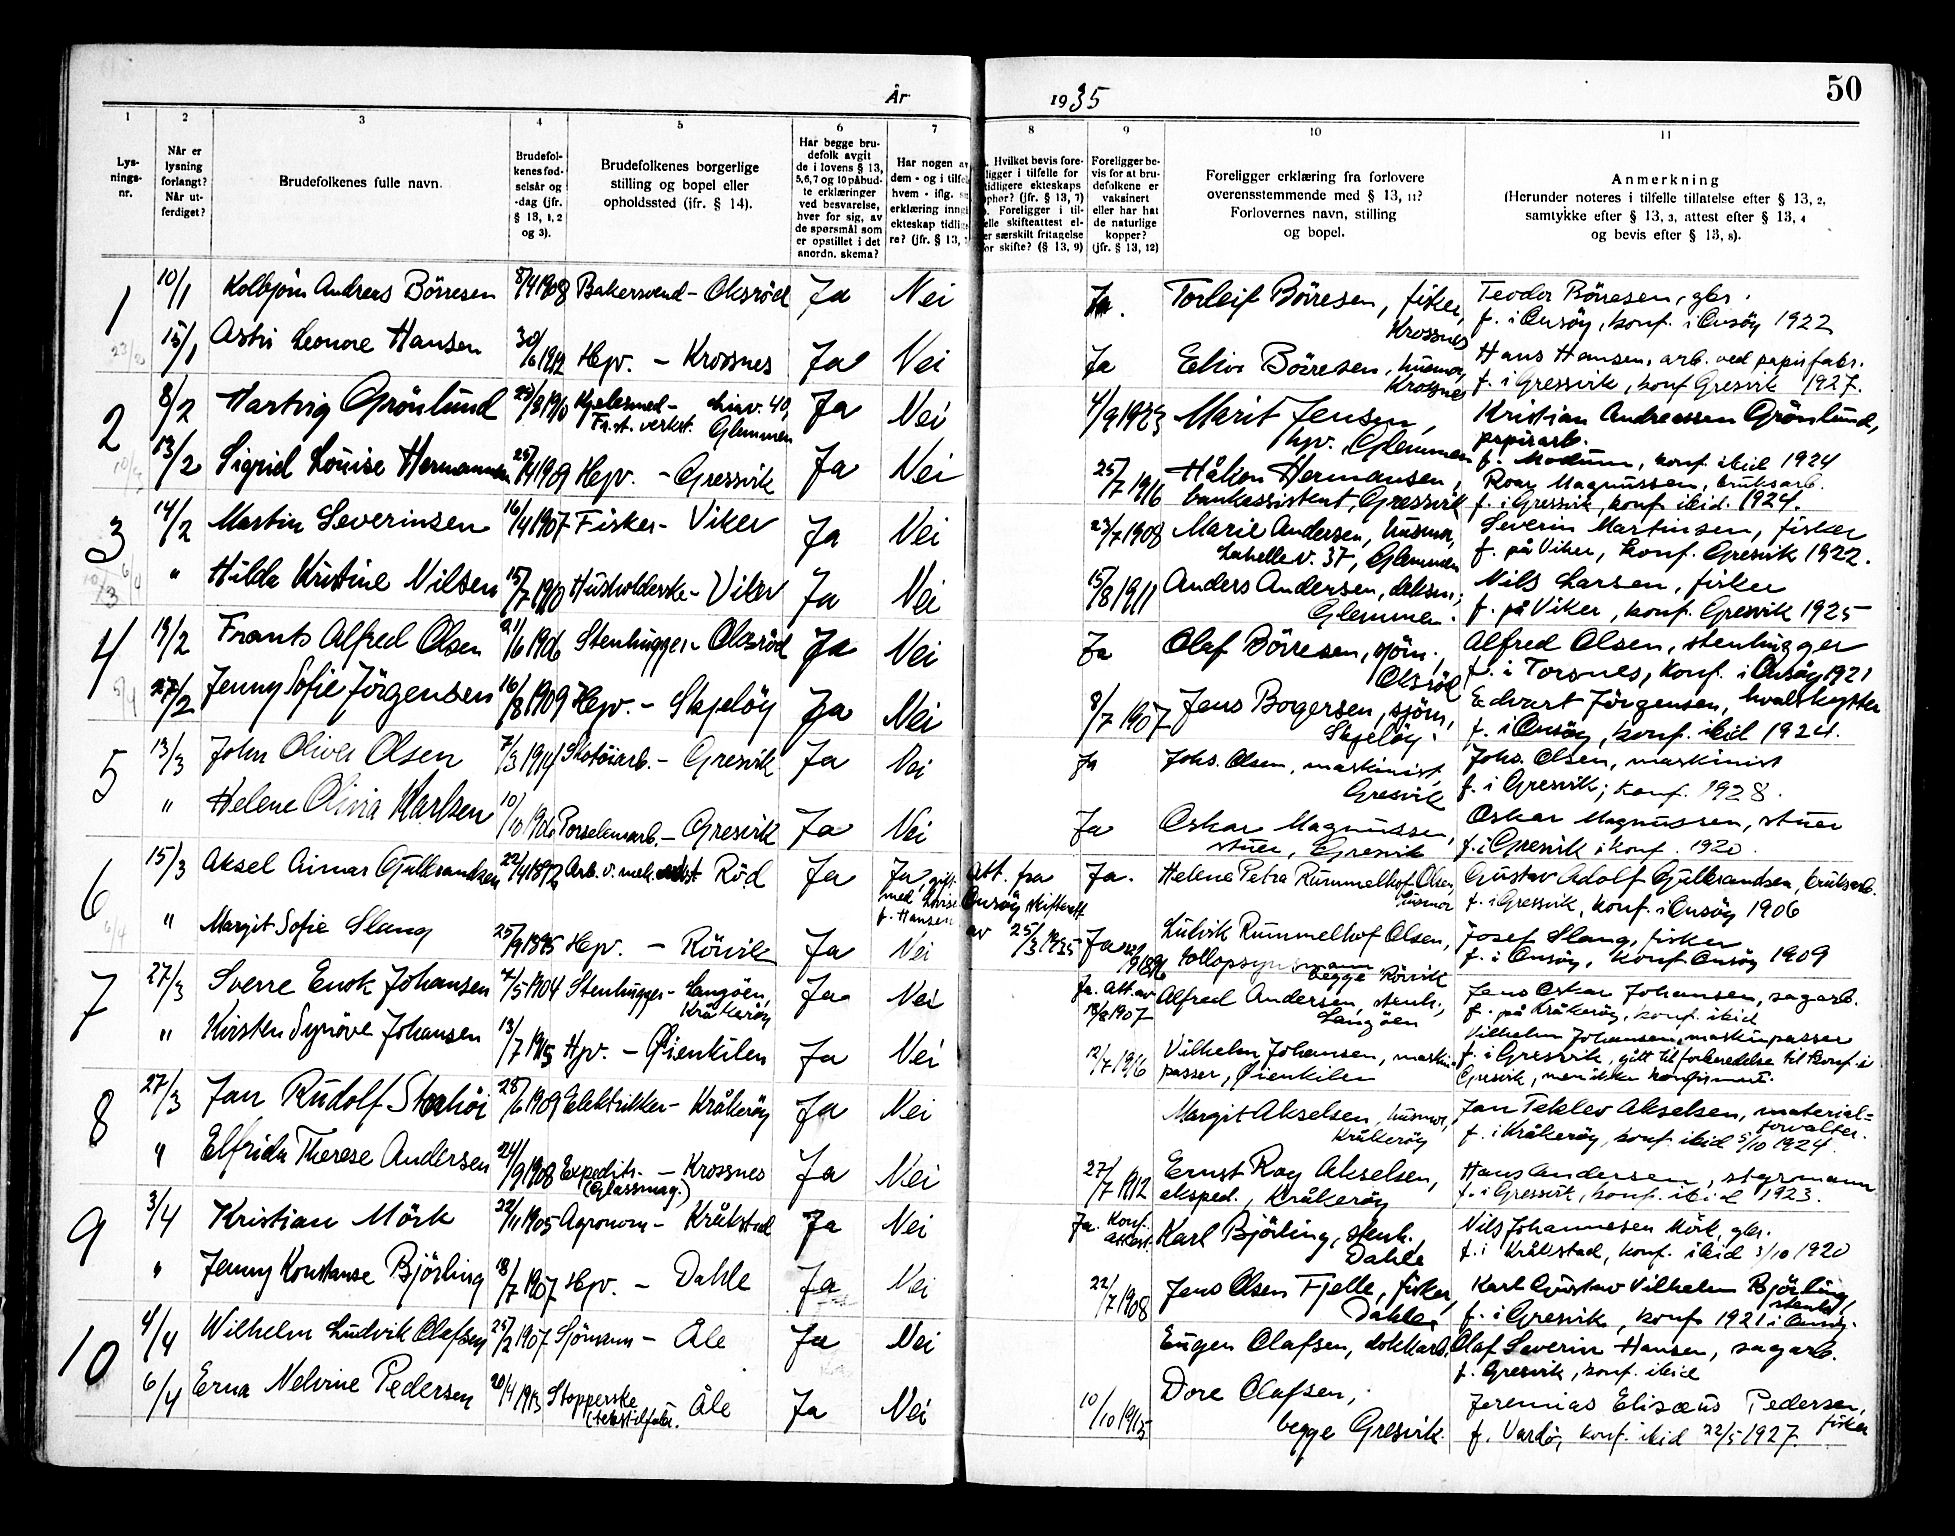 50
År 1935
1 2 3 4 5 6 7 8 9 10 11
Lys-
nings-
nr.
Når er
lysning
forlangt?
Når ut-
ferdiget?
Brudefolkenes fulle navn.
Brudefol-
kenes fød-
selsår og
-dag (jfr.
§ 13, 1, 2
og 3).
Brudefolkenes borgerlige
stilling og bopel eller
opholdssted (ifr. § 14).
Har begge bru-
defolk avgit
de i lovens § 13,
5,6,7 og 10 påbud-
te erklæringer
ved besvarelse,
hver for sig, av
de spørsmål som
er opstillet i det
anordn. skema?
Har nogen av
dem - og i tilfel
hvem - iflg.
erklæring inng
ekteskap tidlig
re? (jfr. § 13,
Hvilket bevis fore-
ligger i tilfelle for
tidligere ekteskaps
ophør? (jfr. § 13, 7)
Foreligger i til-
felle skifteattest el-
er særskilt fritagelse
for skifte? (§ 13, 9)
Foreligger be-
vis for at bru-
defolkene er
vaksinert
eller har hat
de naturlige
kopper?
(jfr. § 13, 12)
Foreligger erklæring fra forlovere
overensstemmende med § 13, 11?
Forlovernes navn, stilling
og bopel.
Anmerkning
(Herunder noteres i tilfelle tillatelse efter § 13, 2,
samtykke efter § 13, 3, attest efter § 13, 4
og bevis efter § 13, 8).
1 10/1 Kolbjørn Andreas Börresen 8/4 1908 Bakersvend - Oksröd Ja Nei Ja. Torleif Börresen, fisker, Krossnes Teodor Börresen, gbr.
f. i Onsöy, konf. i Onsöy 1922
15/1 Astri Leonore Hansen 30/6 1912 Hpv. - Krossnes Ja Nei Ja Böirresen, husmor, Krossnes Hans Hansen, arb. ved papirfabr.
f. i Gressvik, konf Gresvik 1927.
2 8/2 Hartvig Grönlund 25/8 1910 Kjelesmed - 40,
Fr.st. verkst. Glemmen Ja Nei 4/9 1923 Marit Jensen,
hpv. Glemmen Kristian Andreassen Grönlund,
papirarb.
f. Modum, konf. ibid 1924
13/2 Sigrid Louise Hermansen 25/4 1909 Hpv. - Gressvik Ja Nei 25/7 1916 Håkon Hermansen,
bankassistent, Gressvik Roar Magnussen, bruksarb.
f. i Gressvik, konf. ibid. 1924.
3 14/2 Martin Severinsen 16/4 1907 Fisker - Viker Ja Nei 23/7 1908 Marie Andersen, husmor,
Labellev. 37, Glemmen Severin Martinsen, fisker
f. på Viker, konf. Gresvik 1922.
" Hilda Kristine Nilsen 15/7 1910 Husholderske - Viker Ja Nei 15/8 1911 Anders Andersen,
Glemmen. Nils Larsen, fisker
f. på Viker, konf. Gresvik 1925
4 19/2 Frants Alfred Olsen 21/6 1906 Stenhugger - Oksröd Ja Nei Ja Olaf Börresen, sjöm.,
Oksröd Alfred Olsen, stenhugger
f. i Torsnes, konf. i Onsöy 1921
27/2 Jenny Sofie Jörgensen 16/8 1909 Hpv. - Skjelöy Ja Nei 8/7 1907 Jens Borgersen, sjöm,
Skjelöy. Edvart Jörgensen, hvalskytter
f. i Onsöy, konf. ibid 1924.
5 13/3 John Oliver Olsen 7/3 1914 Skotöiarb. - Gresvik Ja Nei Ja Johs. Olsen, maskinist,
Gresvik Johs. Olsen, maskinist
f. i Gresvik; konf. 1928.
" Helene Olivia Karlsen 10/10 1906 Porselensarb. - Gresvik Ja Nei Ja Oskar Magnussen,
stuer, Gresvik Oskar Magnussen, stuer
f. i Gresvik konf. 1920.
6 15/3 Aksel Aimar Gulbrandsen 22/4 1892 Arb. v. mek. verkst Röd Ja Ja, gift
med Lovise
f. Hansen Att. fra
Onsöy skifterett
av 25/3 1935 Ja. Helene Petra Rummelhof Olsen,
husmor Gustav Adolf Gulbrandsen, bruksarb.
f. i Gressvik, konf. i Onsöy 1906
" Margit Sofie Slang 25/9 1895 Hpv. - Rörvik Ja Nei Ja Ludvik Rummelhof Olsen,
begge Rörvik Josef Slang, fisker
f. i Onsöy, konf. Onsöy 1909
7 27/3 Sverre Enok Johansen 4/5 1904 Stenhugger - Langöen,
Kråkeröy Ja Nei Ja. Att. av
18/8 1907 Alfred Andersen, stenh.,
Langöen Jens Oskar Johansen, sagarb.
f. på Kråkeröy, konf. ibid
" Kirsten Synöve Johansen 13/7 1915 Hpv. - Öienkilen Ja Nei 12/7 1916 Vilhelm Johansen, maskin
passer, Öienkilen Vilhelm Johansen, maskinpasser
f. i Gressvik, gått til forberedelse til konf. i
Gresvik, men ikke konfirmert.
8 27/3 Jan Rudolf Storhöi 28/6 1909 Elektriker - Kråkeröy Ja Nei Margit Akselsen, husmor,
Kråkeröy Jan Teklev Akselsen, material-
forvalter.
f. i Kråkeröy, konf. ibid 5/10 1924.
" Elfrida Therese Andersen 24/9 1908 Expeditr. - Krossnes
(Glassmag.) Ja Nei 27/7 1912 Ernst Roy Akselsen,
eksped., Kråkeröy Hans Andersen, styrmann
f. i Gressvik, konf. ibid 1923.
9 3/4 Kristian Mörk 22/11 1905 Agronom - Kråkstad Ja Nei Ja. Konf.
attest. Karl Björling, stenh.,
Dahle Nils Johannesen Mörk, gbr.
f. i Kråkstad, konf. ibid 3/10 1920
" Jenny Konstanse Björling 18/7 1907 Hpv. - Dahle Ja Nei 22/7 1908 Jens Olsen Fjelle, fisker,
Dahle Karl Gustav Vilhelm Björling,
stenh.
f. i Gresvik, konf. 1921 i Onsöy.
10 4/4 Wilhelm Ludvik Olafsen 25/2 1907 Sjömann - Åle Ja Nei Eugen Olafsen, dokkarb. Olaf Severin Hansen, sagarb.
f. Gresvik, konf. ibid
6/4 Erna Nelvine Pedersen 20/4 1913 Stopperske
(tekstilfabr. - Åle Ja Nei 10/10 1915 Dore Olafsen,
begge Gresvik. Jeremias Elisæus Pedersen,
fisker
f. Vardö, konf. ibid 22/5 1927.